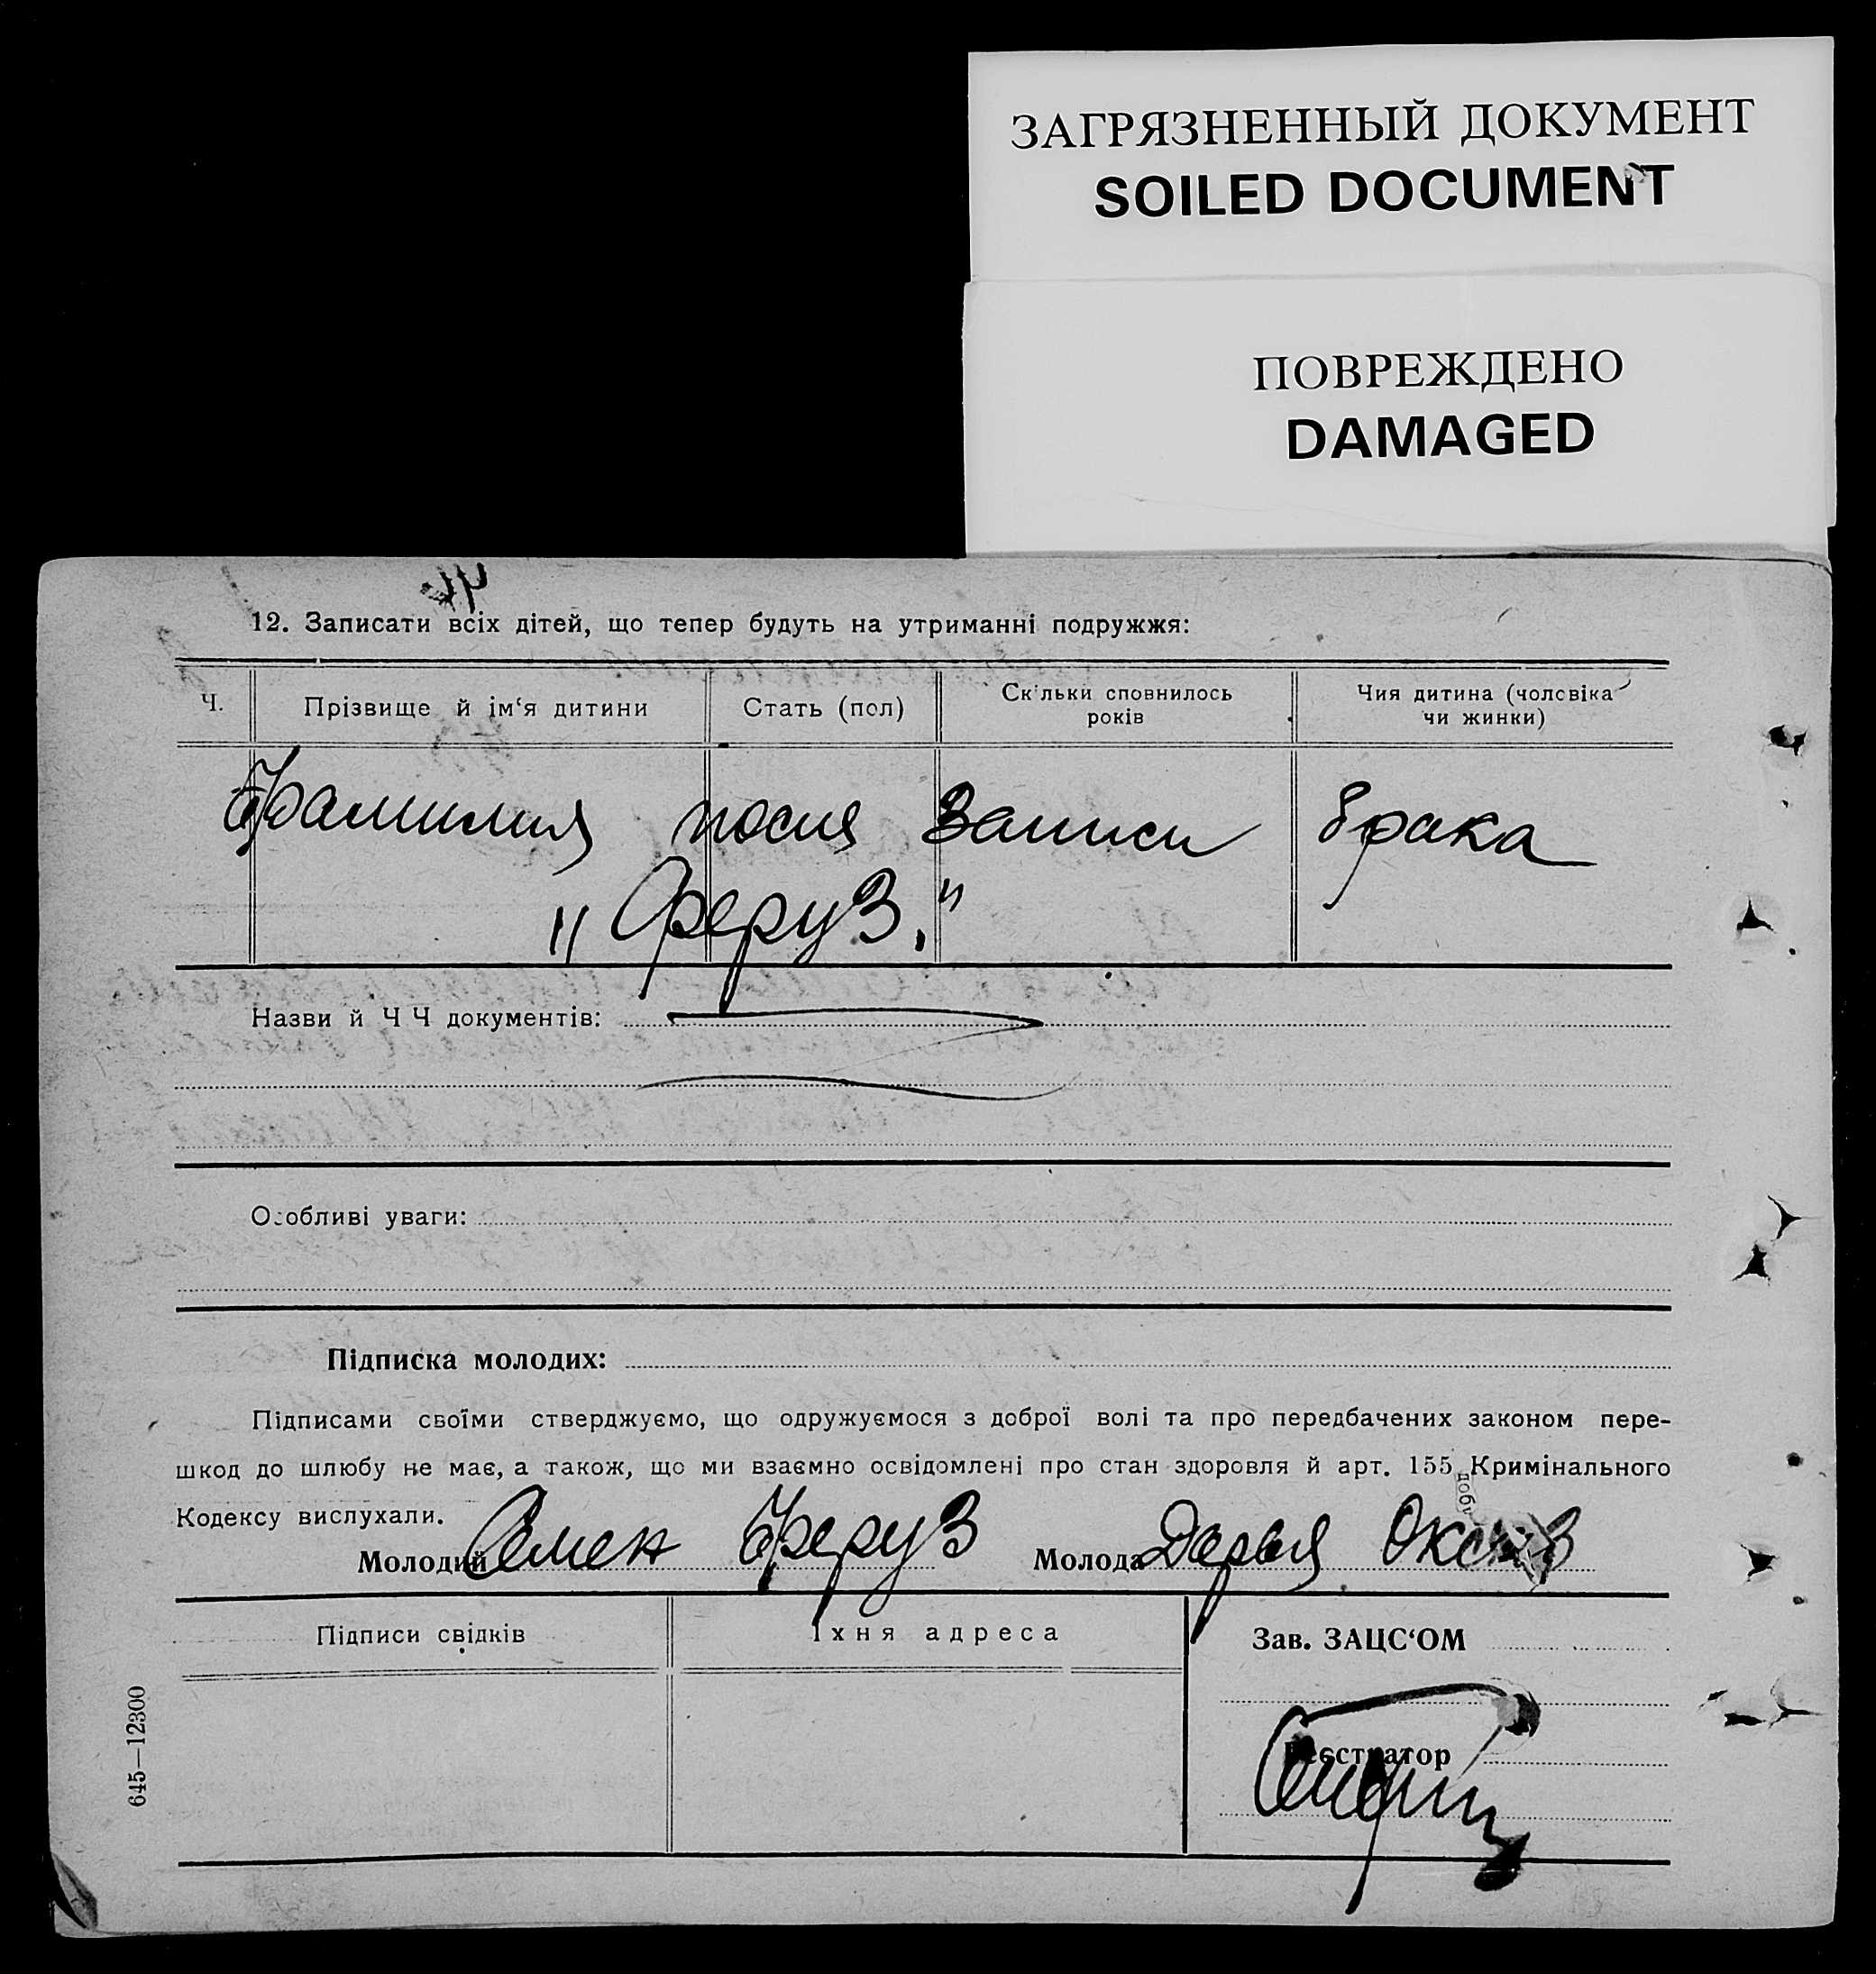 ЗАГРЯЗНЕННЫЙ ДОКУМЕНТ
SOILED DOCUMENT
ПОВРЕЖДЕНО
DAMAGED
12. Записати всіх дітей, що тепер будуть на утриманні подружжя:
Ч. Прізвище й ім‘я дитини Стать (пол) Скільки сповнилось років Чия дитина (чоловіка чи жинки)
Фамилия посля записи брака
„Феруз."
Назви й Ч Ч документів:
Особливі уваги:
Підписка молодих:
Підписами своїми стверджуємо, що одружуємося з доброї волі та про передбачених законом пере-
шкод до шлюбу не має, а також, що ми взаємно освідомлені про стан здоровля й арт. 155 Кримінального
Кодексу вислухали.
Молодий Семен Феруз Молода Дарья
Підписи свідків Їхня адреса Зав. ЗАЦС‘ОМ
Реєстратор
645—12300